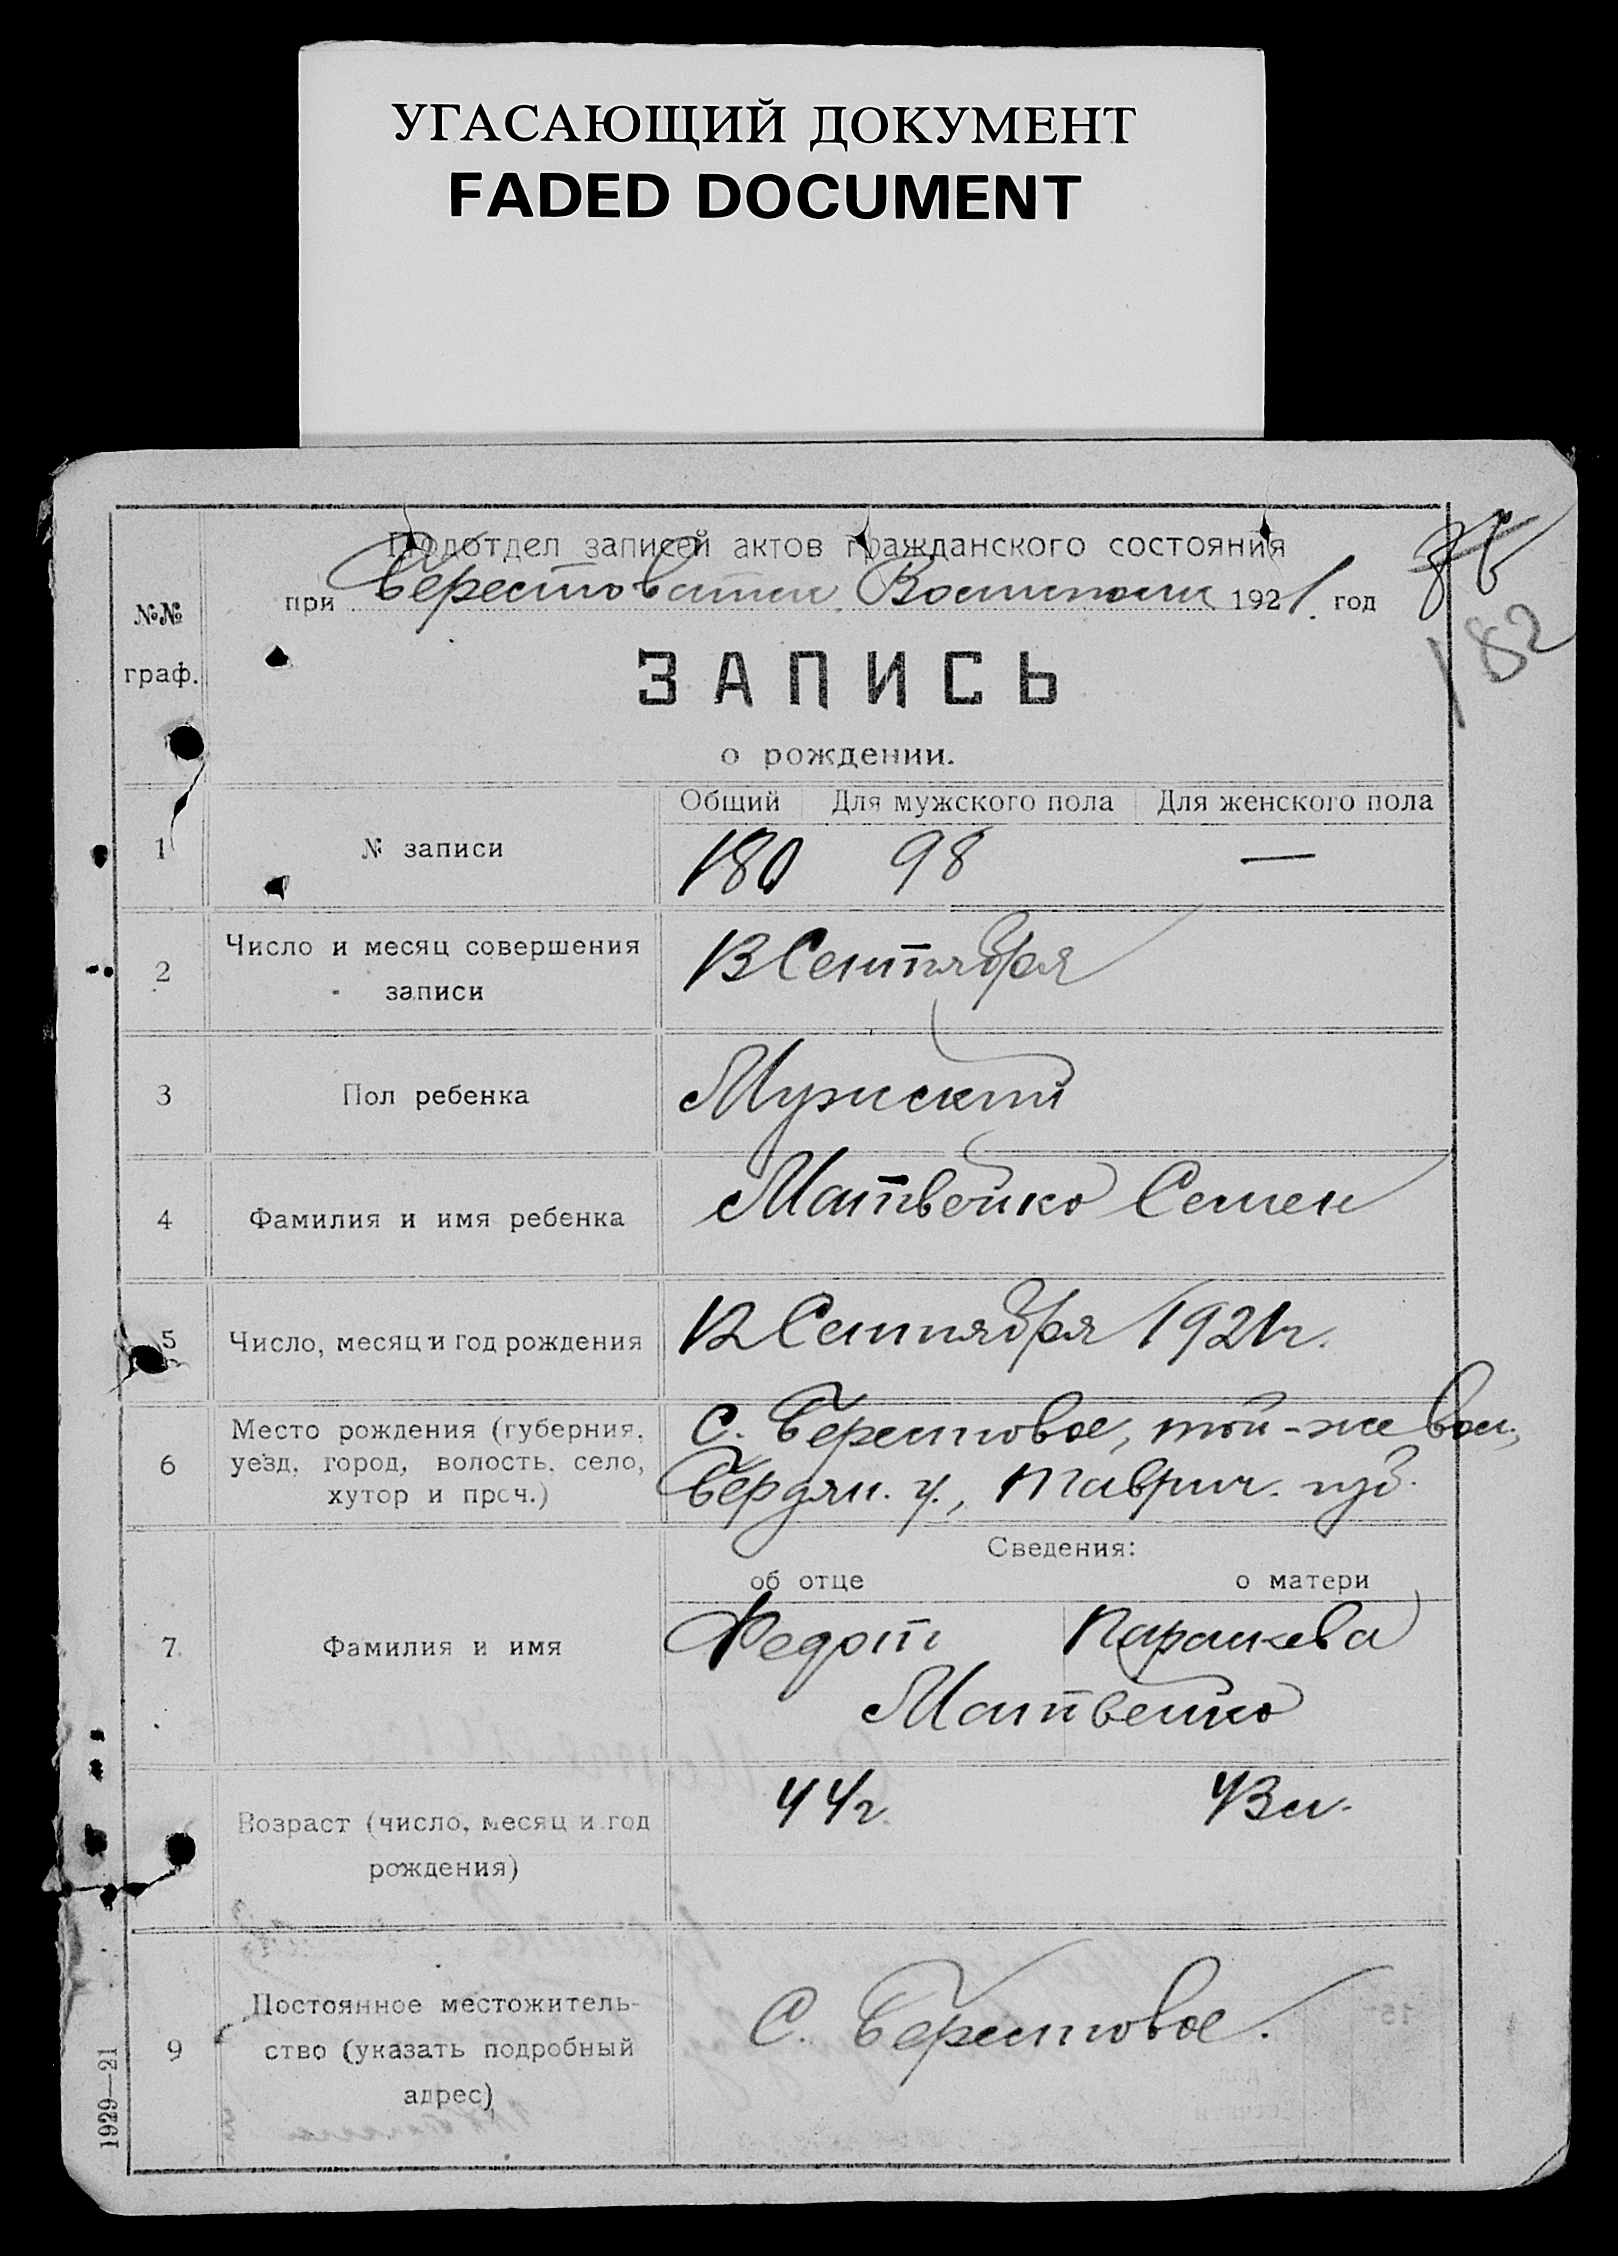 УГАСАЮЩИЙ ДОКУМЕНТ
FADED DOCUMENT
Подотдел записей актов гражданского состояния
при Берестоватск 1921. год
182
№№
граф.
ЗАПИСЬ
о рождении.
Общий Для мужского пола Для женского пола
1 № записи 180 98 —
2 Число и месяц совершения
записи
13 Сентября
3 Пол ребенка Мужской
4 Фамилия и имя ребенка Матвейко Семен
5 Число, месяц и год рождения 12 Сентября 1921 г.
6 Место рождения (губерния,
уезд, город, волость, село,
хутор и проч.)
С. Берестовое, той-же вол.,
Бердян. у., Таврич. губ.
Сведения:
об отце о матери
7 Фамилия и имя Федот Параскева
Матвейко
Возраст (число, месяц и год
рождения)
44 г. 43 л.
9 Постоянное местожитель-
ство (указать подробный
адрес)
С. Берестовое.
1929—21